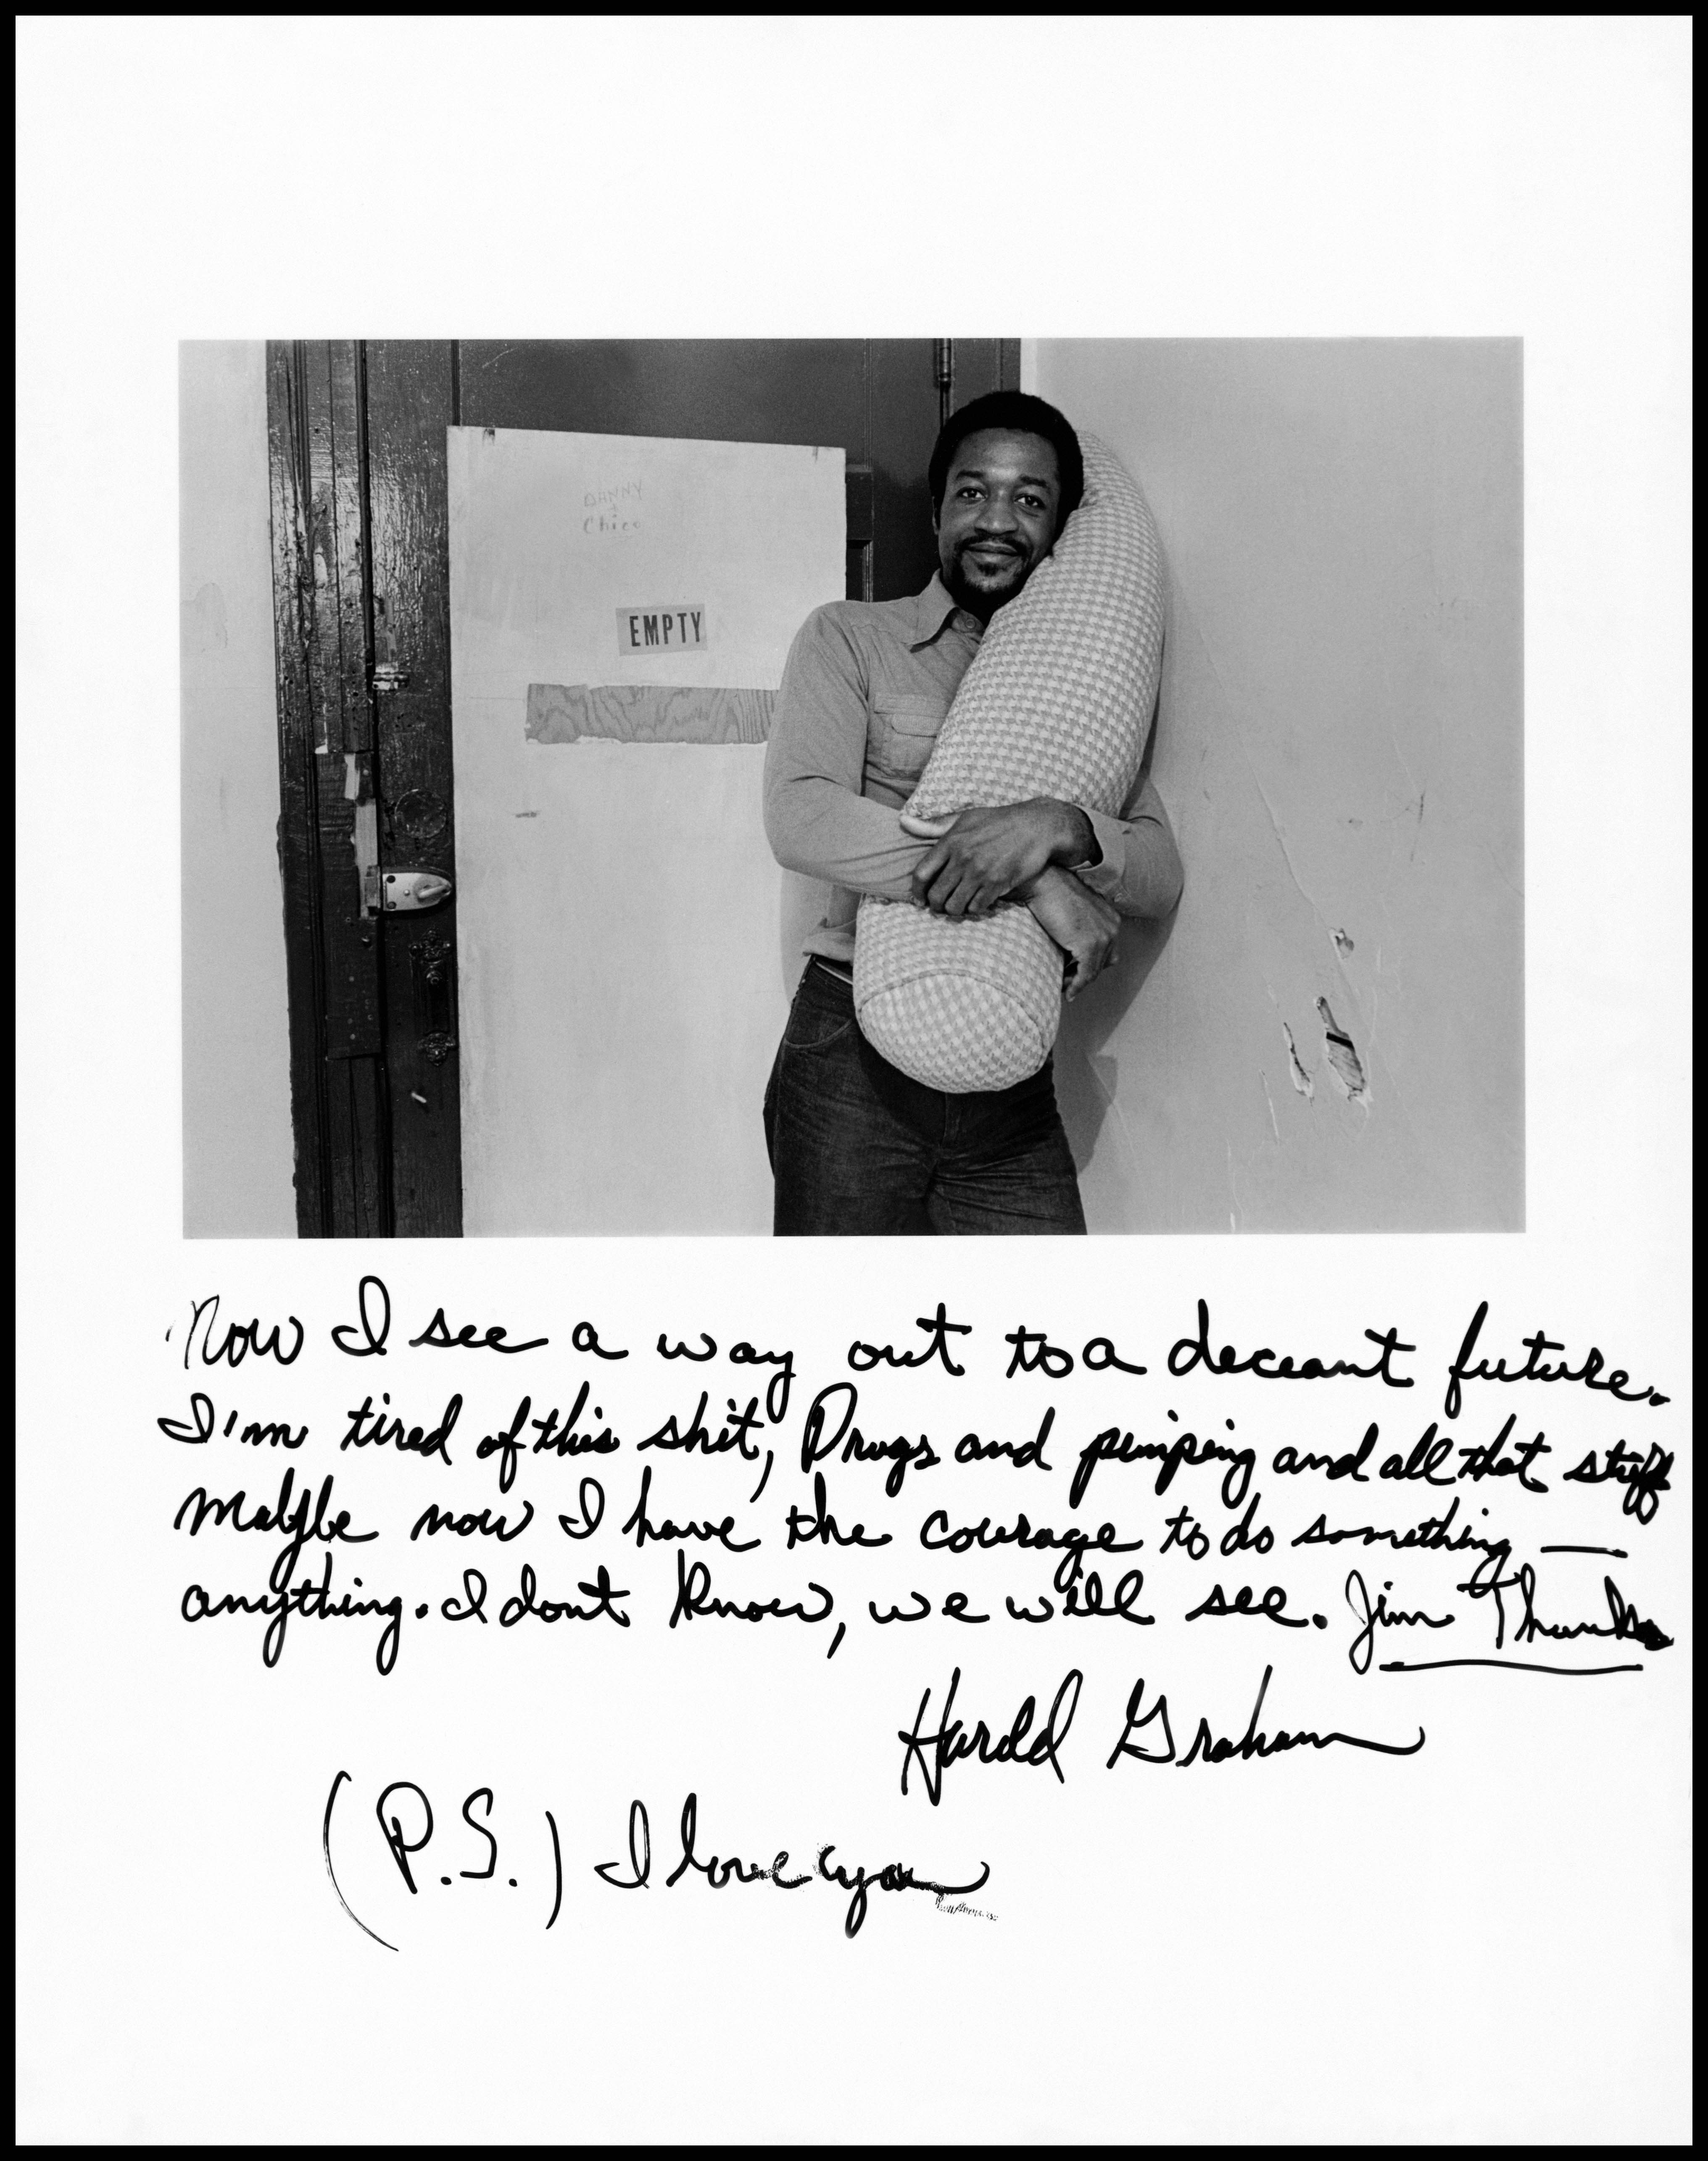 DANNY
+
Chico
EMPTY
Now I see a way out to a deceant future.
I'm tired of this shit, Drugs and pimping and all that stuff
Maybe now I have the courage to do something —
anything. I dont know, we will see. Jim Thanks
Harold Graham
(P.S.) I love you